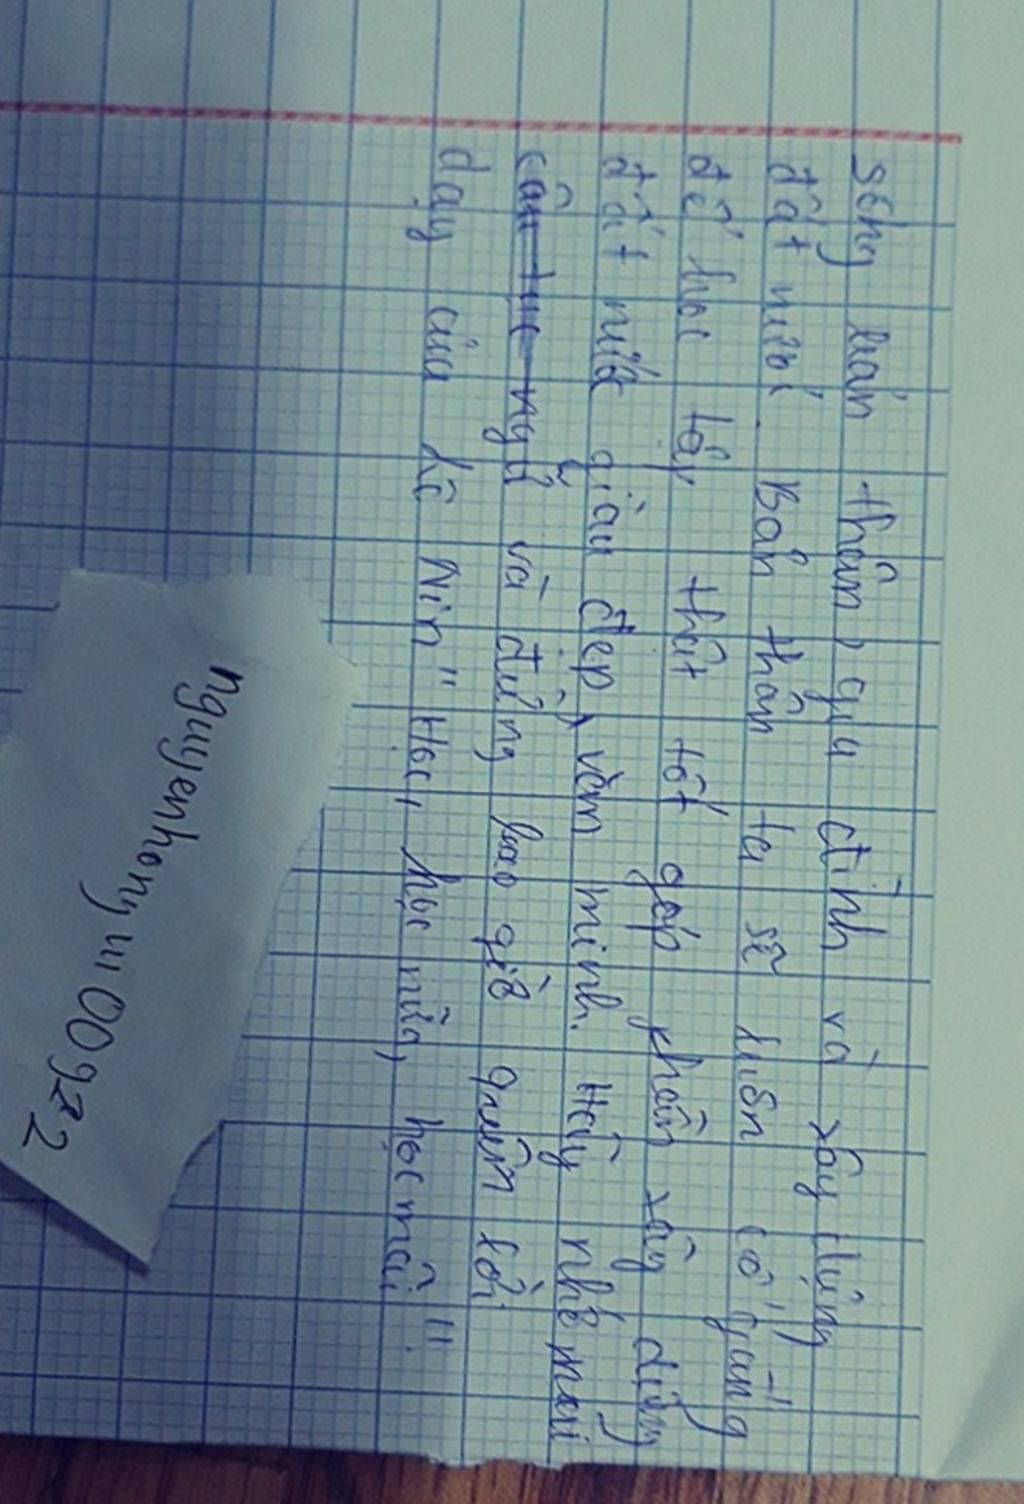 sống bản thân, gia đình và xây dựng
đất nước. Bản thân ta sẽ luôn cố gắng
để học tập thật tốt góp phần xây dựng
đất nước giàu đẹp, văn minh. Hãy nhớ mãi
câu tục ngữ và đừng bao giờ quên lời
dạy của Lê Nin "Học, học nữa, học mãi".
nguyenhongui00922